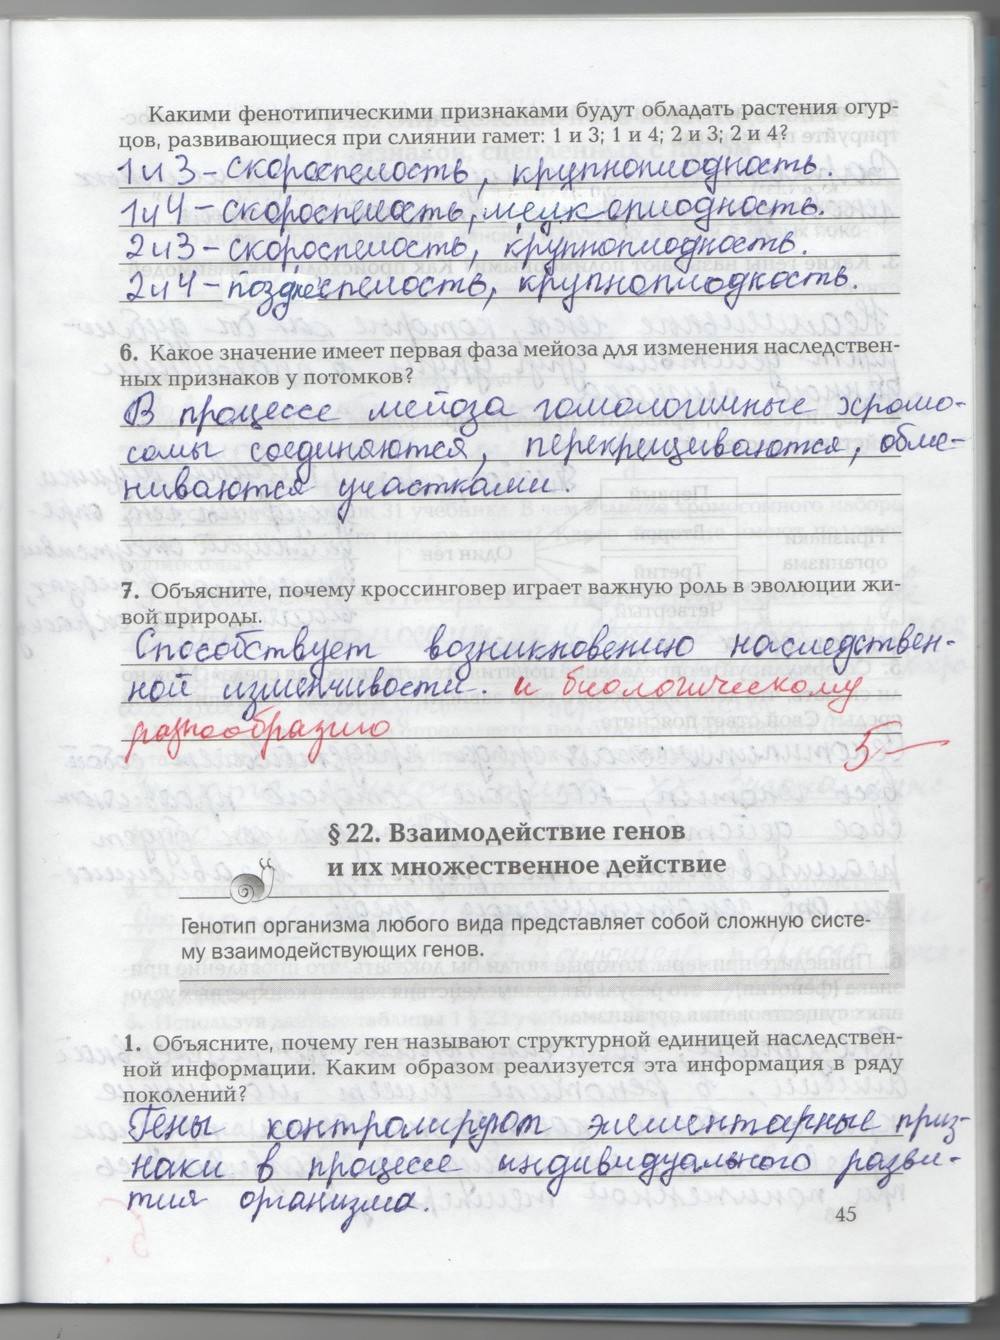 Какими фенотипическими признаками будут обладать растения огур-
цов, развивающиеся при слиянии гамет: 1 и 3; 1 и 4; 2 и 3; 2 и 4?
1 и 3 – скороспелость, крупноплодность.
1 и 4 – скороспелость, мелкоплодность.
2 и 3 – скороспелость, крупноплодность.
2 и 4 – позднеспелость, крупноплодность.
6. Какое значение имеет первая фаза мейоза для изменения наследствен-
ных признаков у потомков?
В процессе мейоза гомологичные хромо-
сомы соединяются, перекрещиваются, обме-
ниваются участками.
7. Объясните, почему кроссинговер играет важную роль в эволюции жи-
вой природы.
Способствует возникновению наследствен-
ной изменчивости. и биологическому
разнообразию
5
§ 22. Взаимодействие генов
и их множественное действие
Генотип организма любого вида представляет собой сложную систе-
му взаимодействующих генов.
1. Объясните, почему ген называют структурной единицей наследствен-
ной информации. Каким образом реализуется эта информация в ряду
поколений?
Гены контролируют элементарные приз-
наки в процессе индивидуального разви-
тия организма.
45